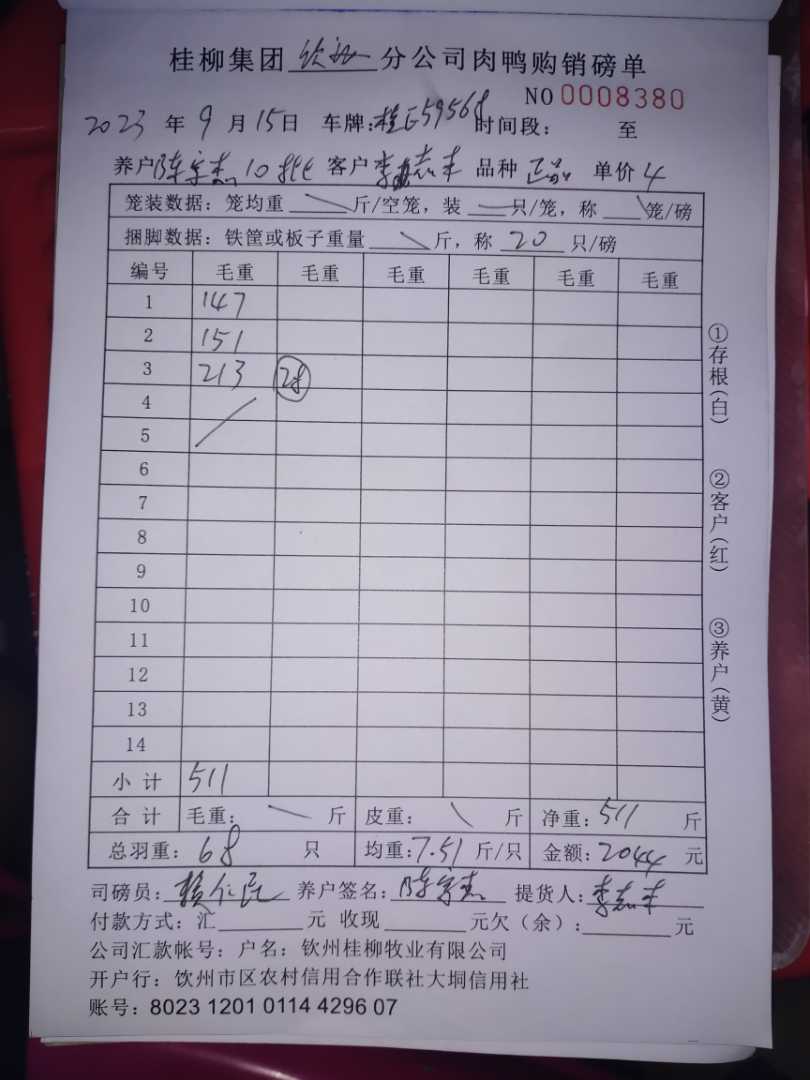 桂柳集团 钦州 分公司肉鸭购销磅单
NO 0008380
2023 年 9 月 15 日 车牌: 桂E59568 时间段: 至
养户 陈 杰 10 批 客户 李志丰 品种 正品 单价 4
笼装数据: 笼均重 斤/空笼, 装 只/笼, 称 笼/磅
捆脚数据: 铁筐或板子重量 斤, 称 20 只/磅
编号 毛重 毛重 毛重 毛重 毛重 毛重
1 147
2 151
3 213 28
4
5
6
7
8
9
10
11
12
13
14
小计 511
合计 毛重: 斤 皮重: 斤 净重: 511 斤
总羽重: 68 只 均重: 7.51 斤/只 金额: 2044 元
司磅员: 仁 养户签名: 陈 杰 提货人: 李志丰
付款方式: 汇 元 收现 元欠(余): 元
公司汇款帐号: 户名: 钦州桂柳牧业有限公司
开户行: 饮州市区农村信用合作联社大垌信用社
账号: 8023 1201 0114 4296 07
①存根(白)
②客户(红)
③养户(黄)